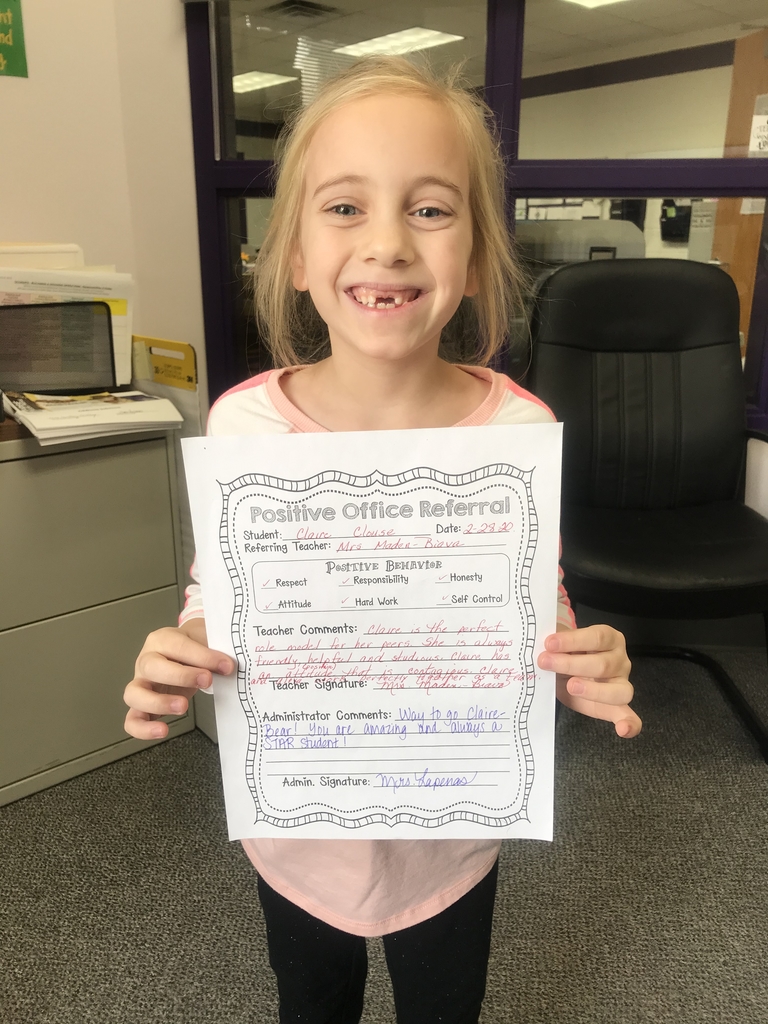 nt
nd
Positive Office Referral
Student: Claire Clouse Date: 2-28-20
Referring Teacher: Mrs Maden-Biava
Positive Behavior
✓ Respect ✓ Responsibility ✓ Honesty
✓ Attitude ✓ Hard Work ✓ Self Control
Teacher Comments: Claire is the perfect
role model for her peers. She is always
friendly, helpful and studious. Claire has
an attitude that is contagious. Claire
and together as a team.
Teacher Signature: Mrs Maden-Biava
Administrator Comments: Way to go Claire-
Bear! You are amazing and always a
STAR student!
Admin. Signature: Mrs Lapenas